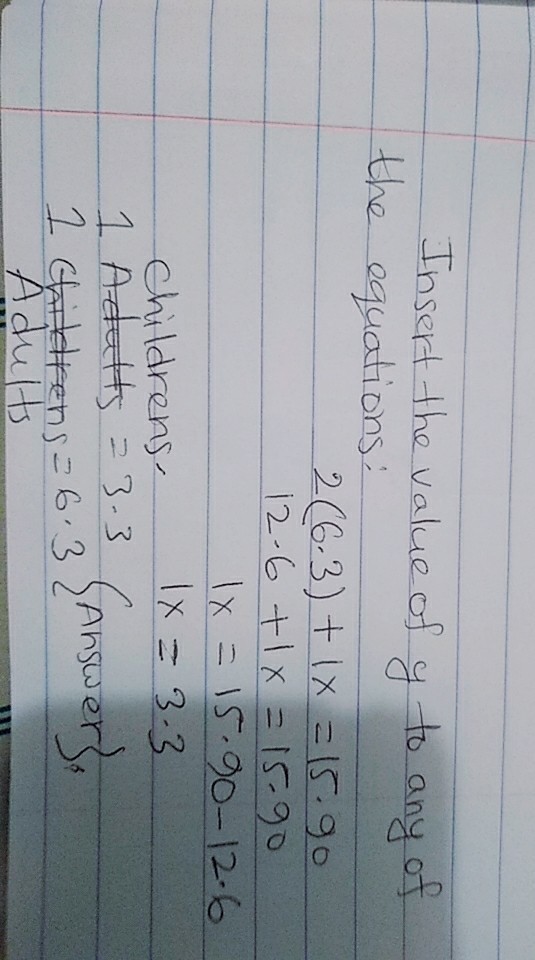 Insert the value of y to any of
the equations:
2(6.3) + 1x = 15.90
12.6 + 1x = 15.90
1x = 15.90 - 12.6
1x = 3.3
Childrens.
1 Adults = 3.3
1 Childrens = 6.3 {Answer}.
Adults